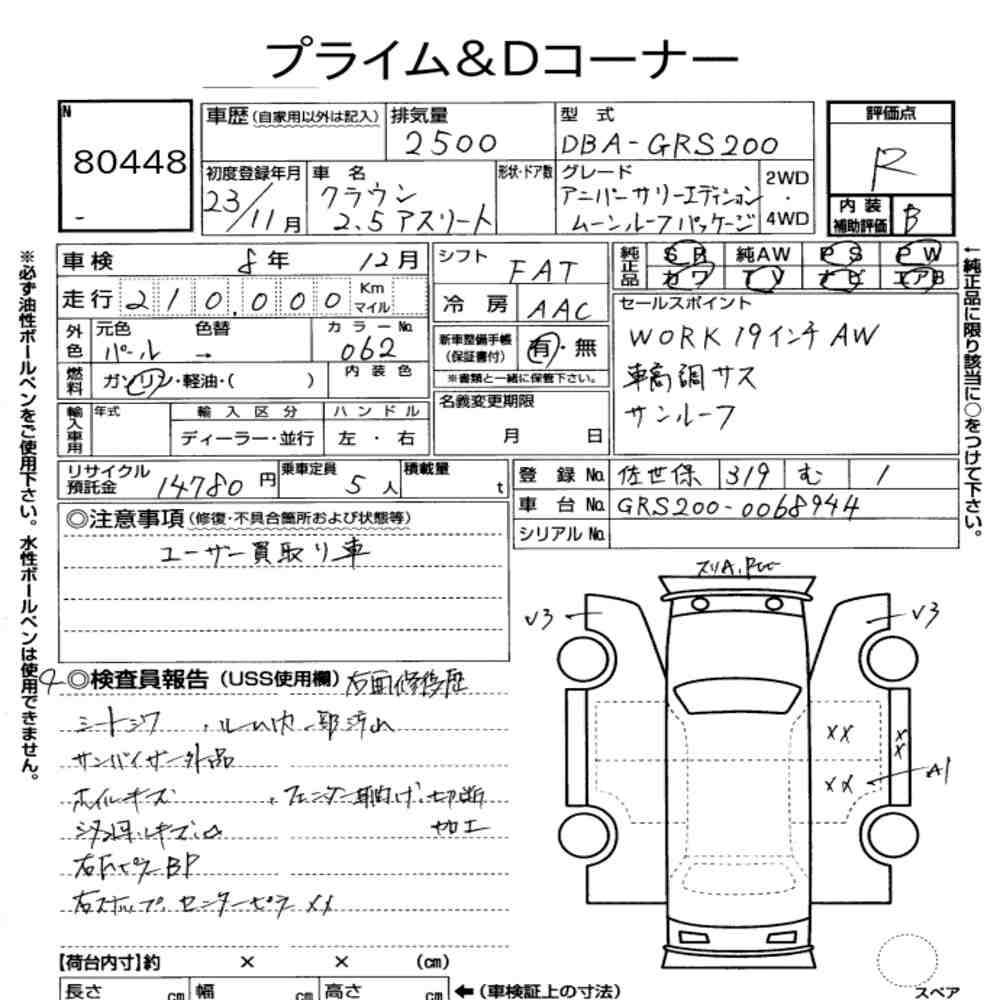 プライム&Dコーナー
N
80448
車歴(自家用以外は記入)
排気量
2500
型 式
DBA-GRS200
評価点
R
初度登録年月
23/11月
車 名
クラウン
2.5アスリート
形状・ドア数
グレード
アニバーサリーエディション
ムーンルーフパッケージ
2WD
・
4WD
内装
補助評価
B
※必ず油性ボールペンをご使用下さい。水性ボールペンは使用できません。
車検 8年 12月
走行 210,000 Km マイル
外色
元色
パール
色替
→
カラーNo.
062
燃料
ガソリン・軽油・( )
内装色
輸入車用
年式
輸入区分
ディーラー・並行
ハンドル
左・右
シフト
FAT
冷房
AAC
新車整備手帳
(保証書付)
有・無
※書類と一緒に保管下さい。
名義変更期限
月 日
純正品
SR 純AW PS PW
カワ TV ナビ エアB
セールスポイント
WORK 19インチAW
車高調サス
サンルーフ
←純正品に限り該当に○をつけて下さい。
リサイクル
預託金
14780円
乗車定員
5人
積載量
t
登録No.
佐世保 319 む 1
車台No.
GRS200-0068944
シリアルNo.
◎注意事項(修復・不具合箇所および状態等)
ユーザー買取り車
◎検査員報告(USS使用欄)
右面修復歴
シートシワ ・ルーム内一部汚れ
サンバイザー外品
ホイルキズ ・フェンダー爪曲げ・切断
加工
右ステップ、センターピラーXX
V3
V3
XX
XX
XX
A1
スペア
【荷台内寸】約 × × (cm)
長さ cm
幅 cm
高さ cm
←(車検証上の寸法)